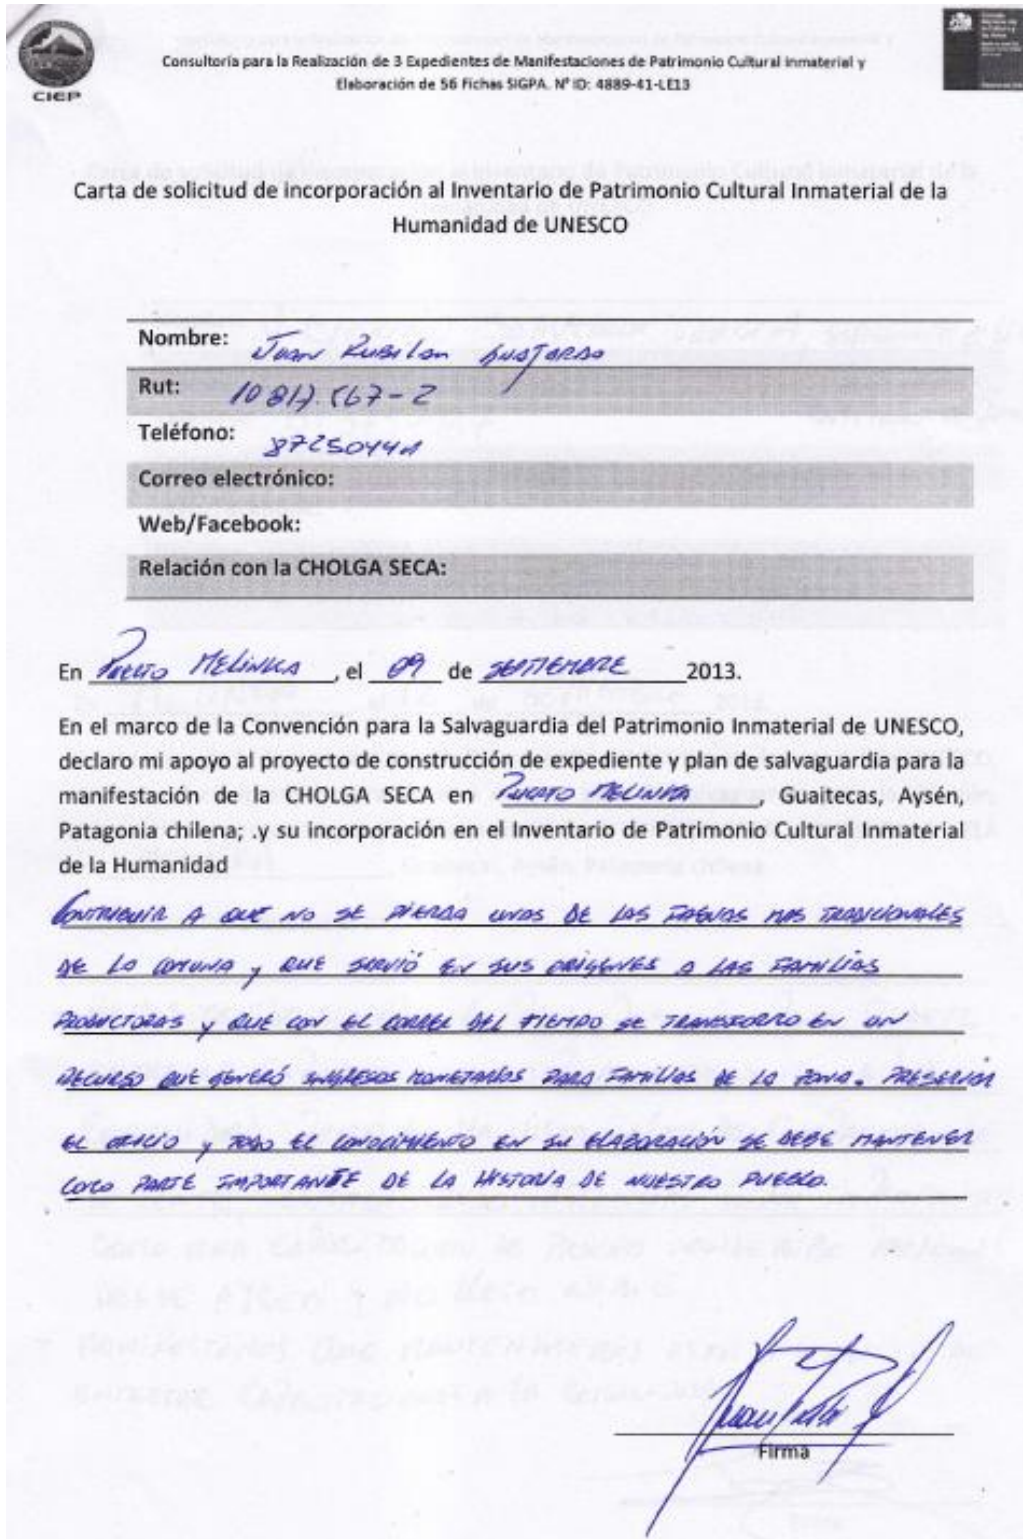 CIEP
Consultoría para la Realización de 3 Expedientes de Manifestaciones de Patrimonio Cultural Inmaterial y
Elaboración de 56 Fichas SIGPA. N° ID: 4889-41-LE13
Carta de solicitud de incorporación al Inventario de Patrimonio Cultural Inmaterial de la
Humanidad de UNESCO
Nombre: Juan Rubilar Guajardo
Rut:
Teléfono:
Correo electrónico:
Web/Facebook:
Relación con la CHOLGA SECA:
En Puerto Melinka, el 09 de SEPTIEMBRE 2013.
En el marco de la Convención para la Salvaguardia del Patrimonio Inmaterial de UNESCO,
declaro mi apoyo al proyecto de construcción de expediente y plan de salvaguardia para la
manifestación de la CHOLGA SECA en PUERTO MELINKA, Guaitecas, Aysén,
Patagonia chilena; .y su incorporación en el Inventario de Patrimonio Cultural Inmaterial
de la Humanidad
CONTRIBUIR A QUE NO SE PIERDA UNAS DE LAS FAENAS MAS TRADICIONALES
DE LA COMUNA y QUE SIRVIÓ EN SUS ORÍGENES A LAS FAMILIAS
PRODUCTORAS y QUE CON EL CORRER DEL TIEMPO SE TRANSFORMO EN UN
RECURSO QUE GENERÓ INGRESOS MONETARIOS PARA FAMILIAS DE LA ZONA. PRESERVAR
EL OFICIO y TODO EL CONOCIMIENTO EN SU ELABORACIÓN SE DEBE MANTENER
COMO PARTE IMPORTANTE DE LA HISTORIA DE NUESTRO PUEBLO.
Firma